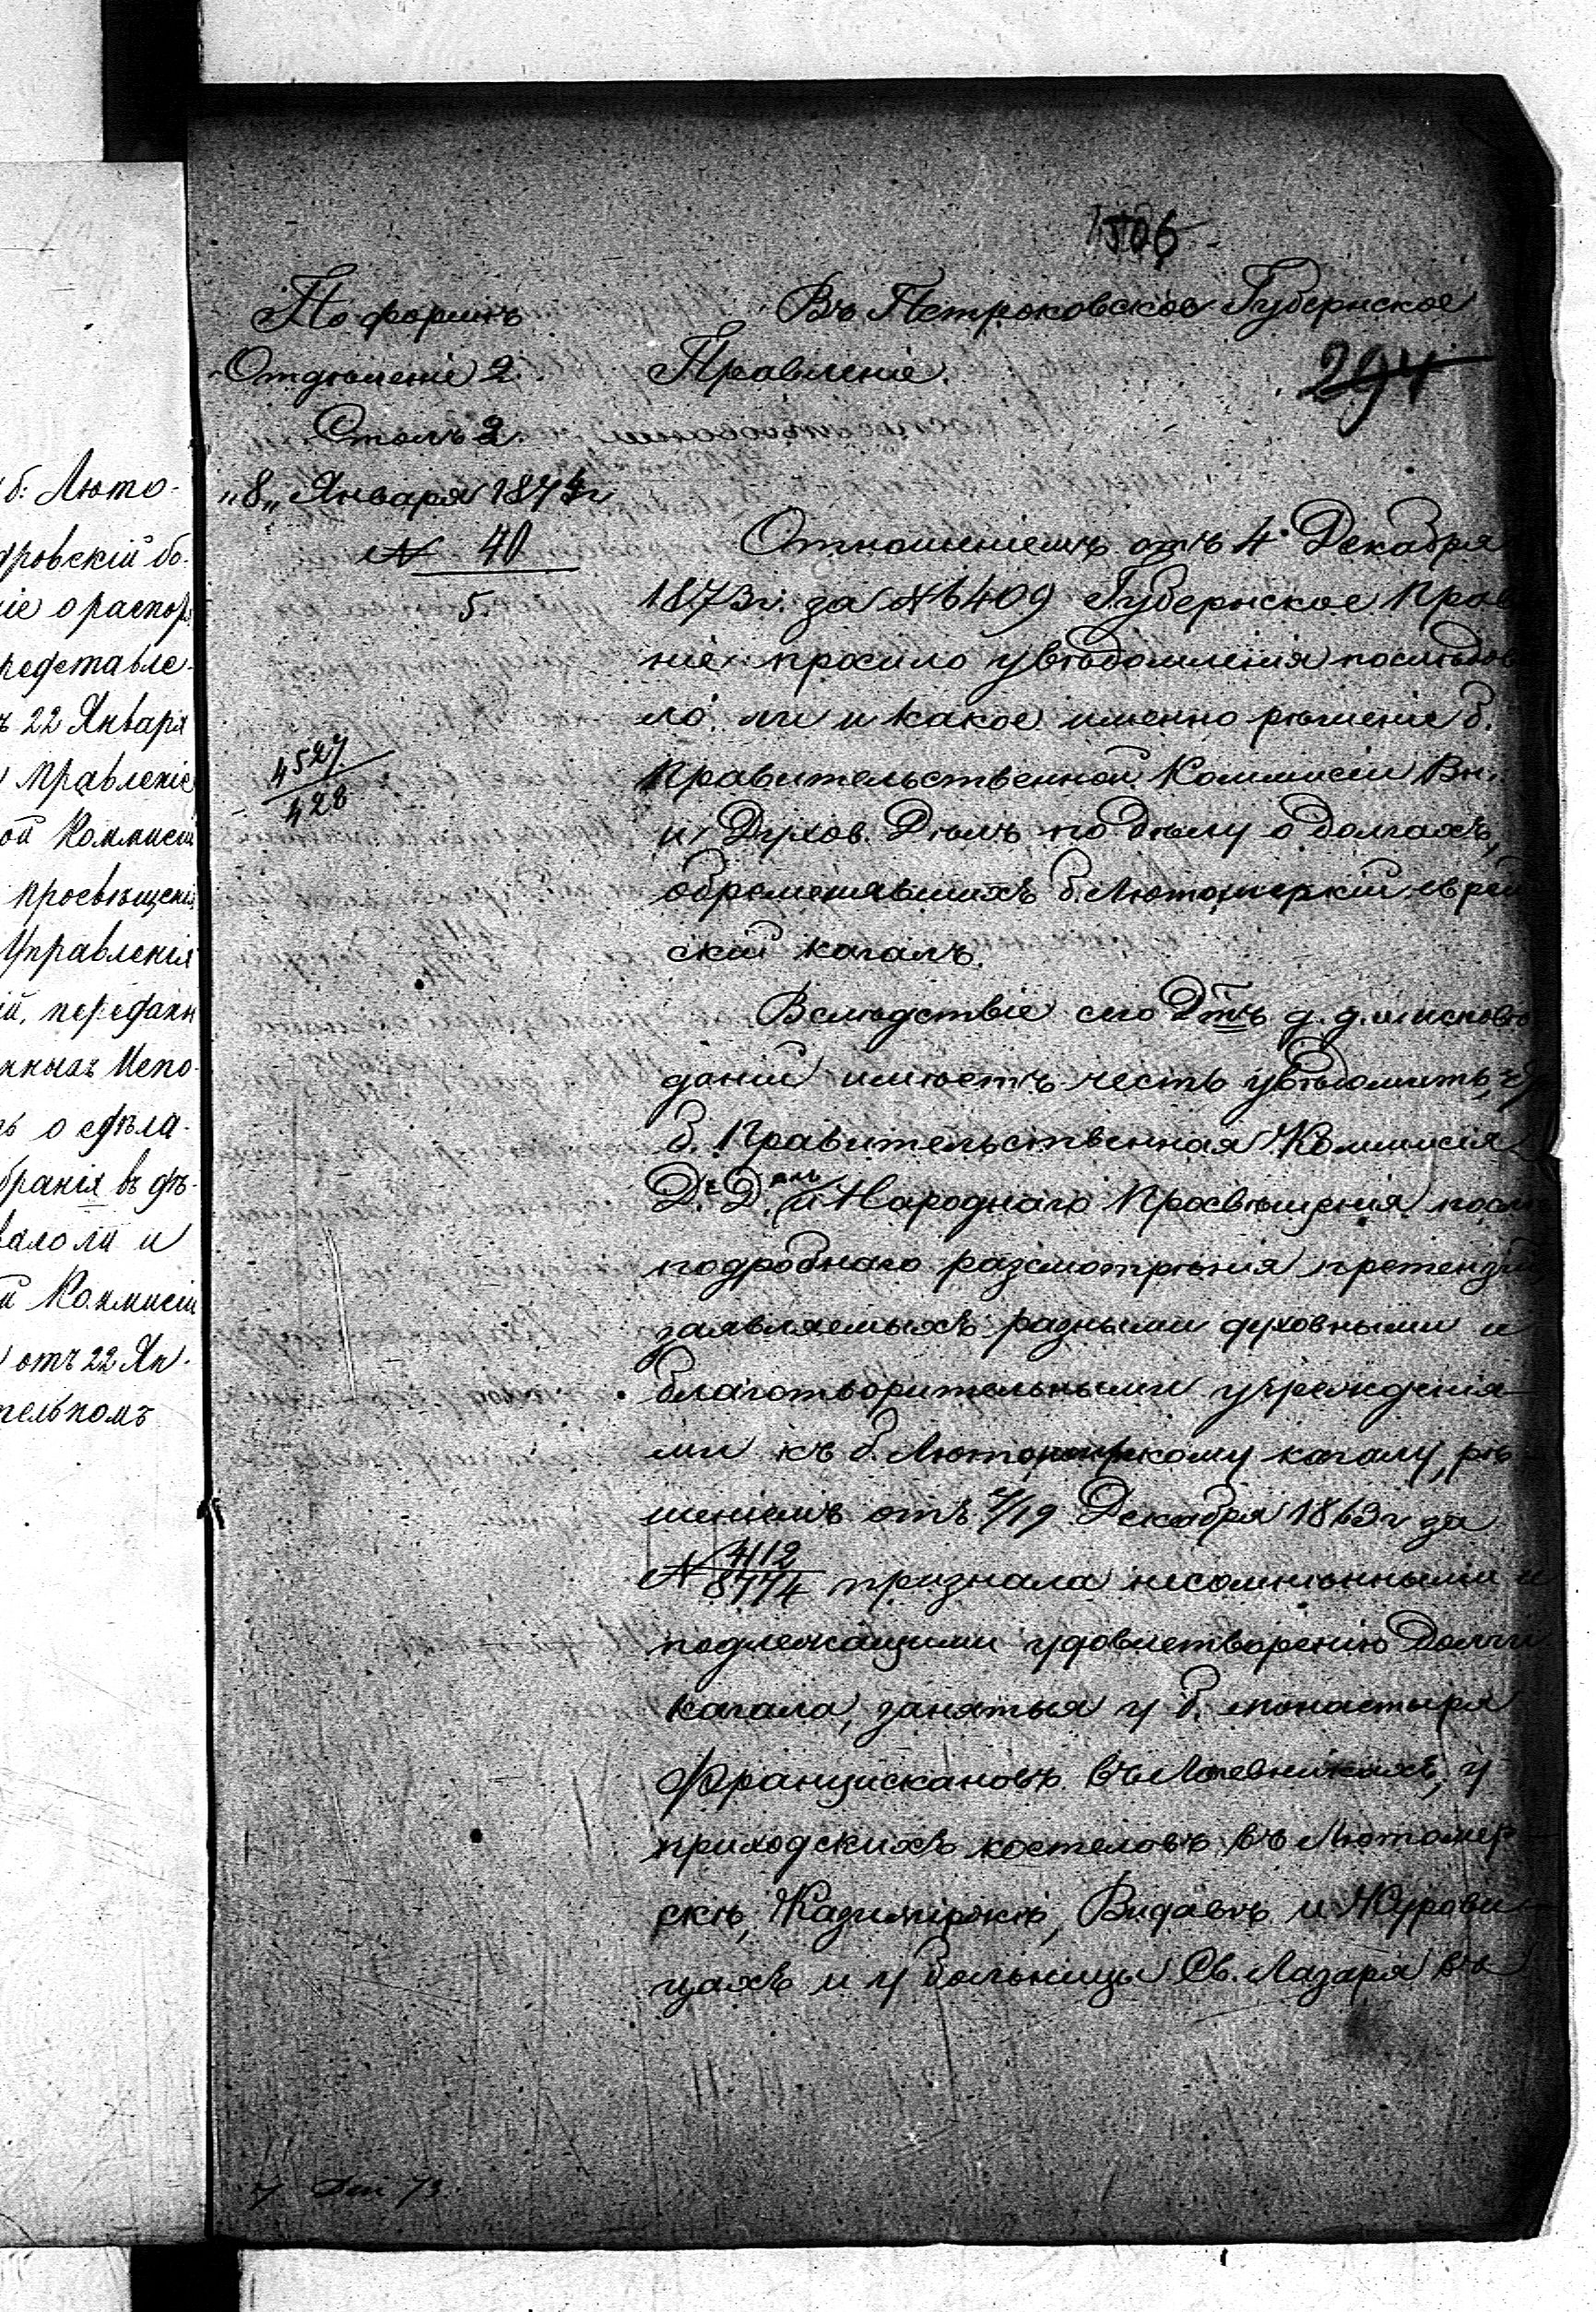 б: Люто-
дровскій бо-
ніе о распор
редставле-
ъ 22 Января
Правленіе
ой Коммисіи
просвѣщенія
Управленія
ій, передан
нныхъ Испо-
ть о сдѣла-
бранія въ дѣ-
вало ли и
й Коммисіи
отъ 22 Ян-
тельномъ
По формѣ
Отдѣленіе 2.
Столъ 2.
"8" Января 1874 г.
№ 40
5.
4527
428
506
Въ Петроковское Губернское
Правленіе.
294
Отношеніемъ отъ 4 Декабря
1873 г. за № 6409 Губернское Прав
ніе просило увѣдомленія послѣдов
ло ли и какое именно рѣшеніе б.
Правительственной Коммисіи Вн.
и Духов. Дѣлъ по дѣлу о долгахъ,
обременявшихъ б. Лютомерскій еврей
скій кагалъ.
Вслѣдствіе сего Дтъ д. д. и исповѣ
даній имѣетъ честь увѣдомить, ч
б. Правительственная Коммисія
В. Д. Дѣлъ и Народнаго Просвѣщенія посл
подробнаго разсмотрѣнія претензій
заявляемыхъ разными духовными и
благотворительными учрежденія
ми къ б. Лютомерскому кагалу, рѣ
шеніемъ отъ 7/19 Декабря 1863 г. за
№ 4112/8774 признала несомнѣнными и
подлежащими удовлетворенію долги
кагала, занятыя у б. монастыря
Францискановъ въ Лагевникахъ, у
приходскихъ костеловъ въ Лютомер
скѣ, Казимірскѣ, Видавѣ и Журови
цахъ и у больницы Св. Лазаря въ